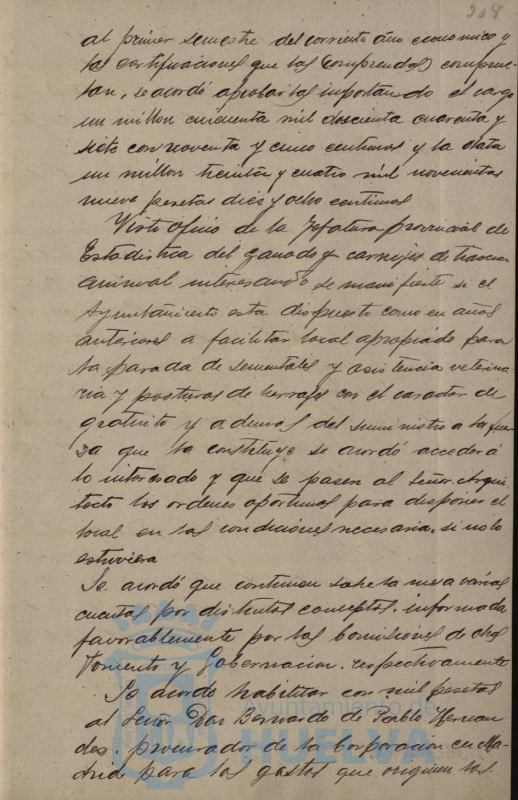 208
al primer semestre del corriente año economico y
la certificaciones que las (comprenda) comprue-
ban, se acordó aprobarlas importando el cargo
un millon cincuenta mil doscienta cuarenta y
siete con noventa y cinco centimos y la data
un millon treinta y cuatro mil novecientas
nueve pesetas diez y ocho centimos
Visto oficio de la Jefatura provincial de
Estadistica del ganado y carruajes de traccion
animal interesando se manifieste si el
Ayuntamiento esta dispuesto como en años
anteriores a facilitar local apropiado para
la parada de sementales y asistencia veterina
ria y posturas de herrajes con el caracter de
gratuito y ademas del suministro a la fuer
za que la constituye se acordó acceder á
lo interesado y que se pasen al señor Arqui
tecto las ordenes oportunas para disponer el
local en las condiciones necesaria, si no lo
estuviera
Se acordó que continuen sobre la mesa varias
cuentas por distintos conceptos, informada
favorablemente por las Comisiones de
Fomento y Gobernacion, respectivamente
Se acordo habilitar con mil pesetas
al Señor Don Bernardo de Pablo Hernan
des, procurador de la Corporacion en Ma-
drid para los gastos que originen las
Ayuntamiento de
HUELVA